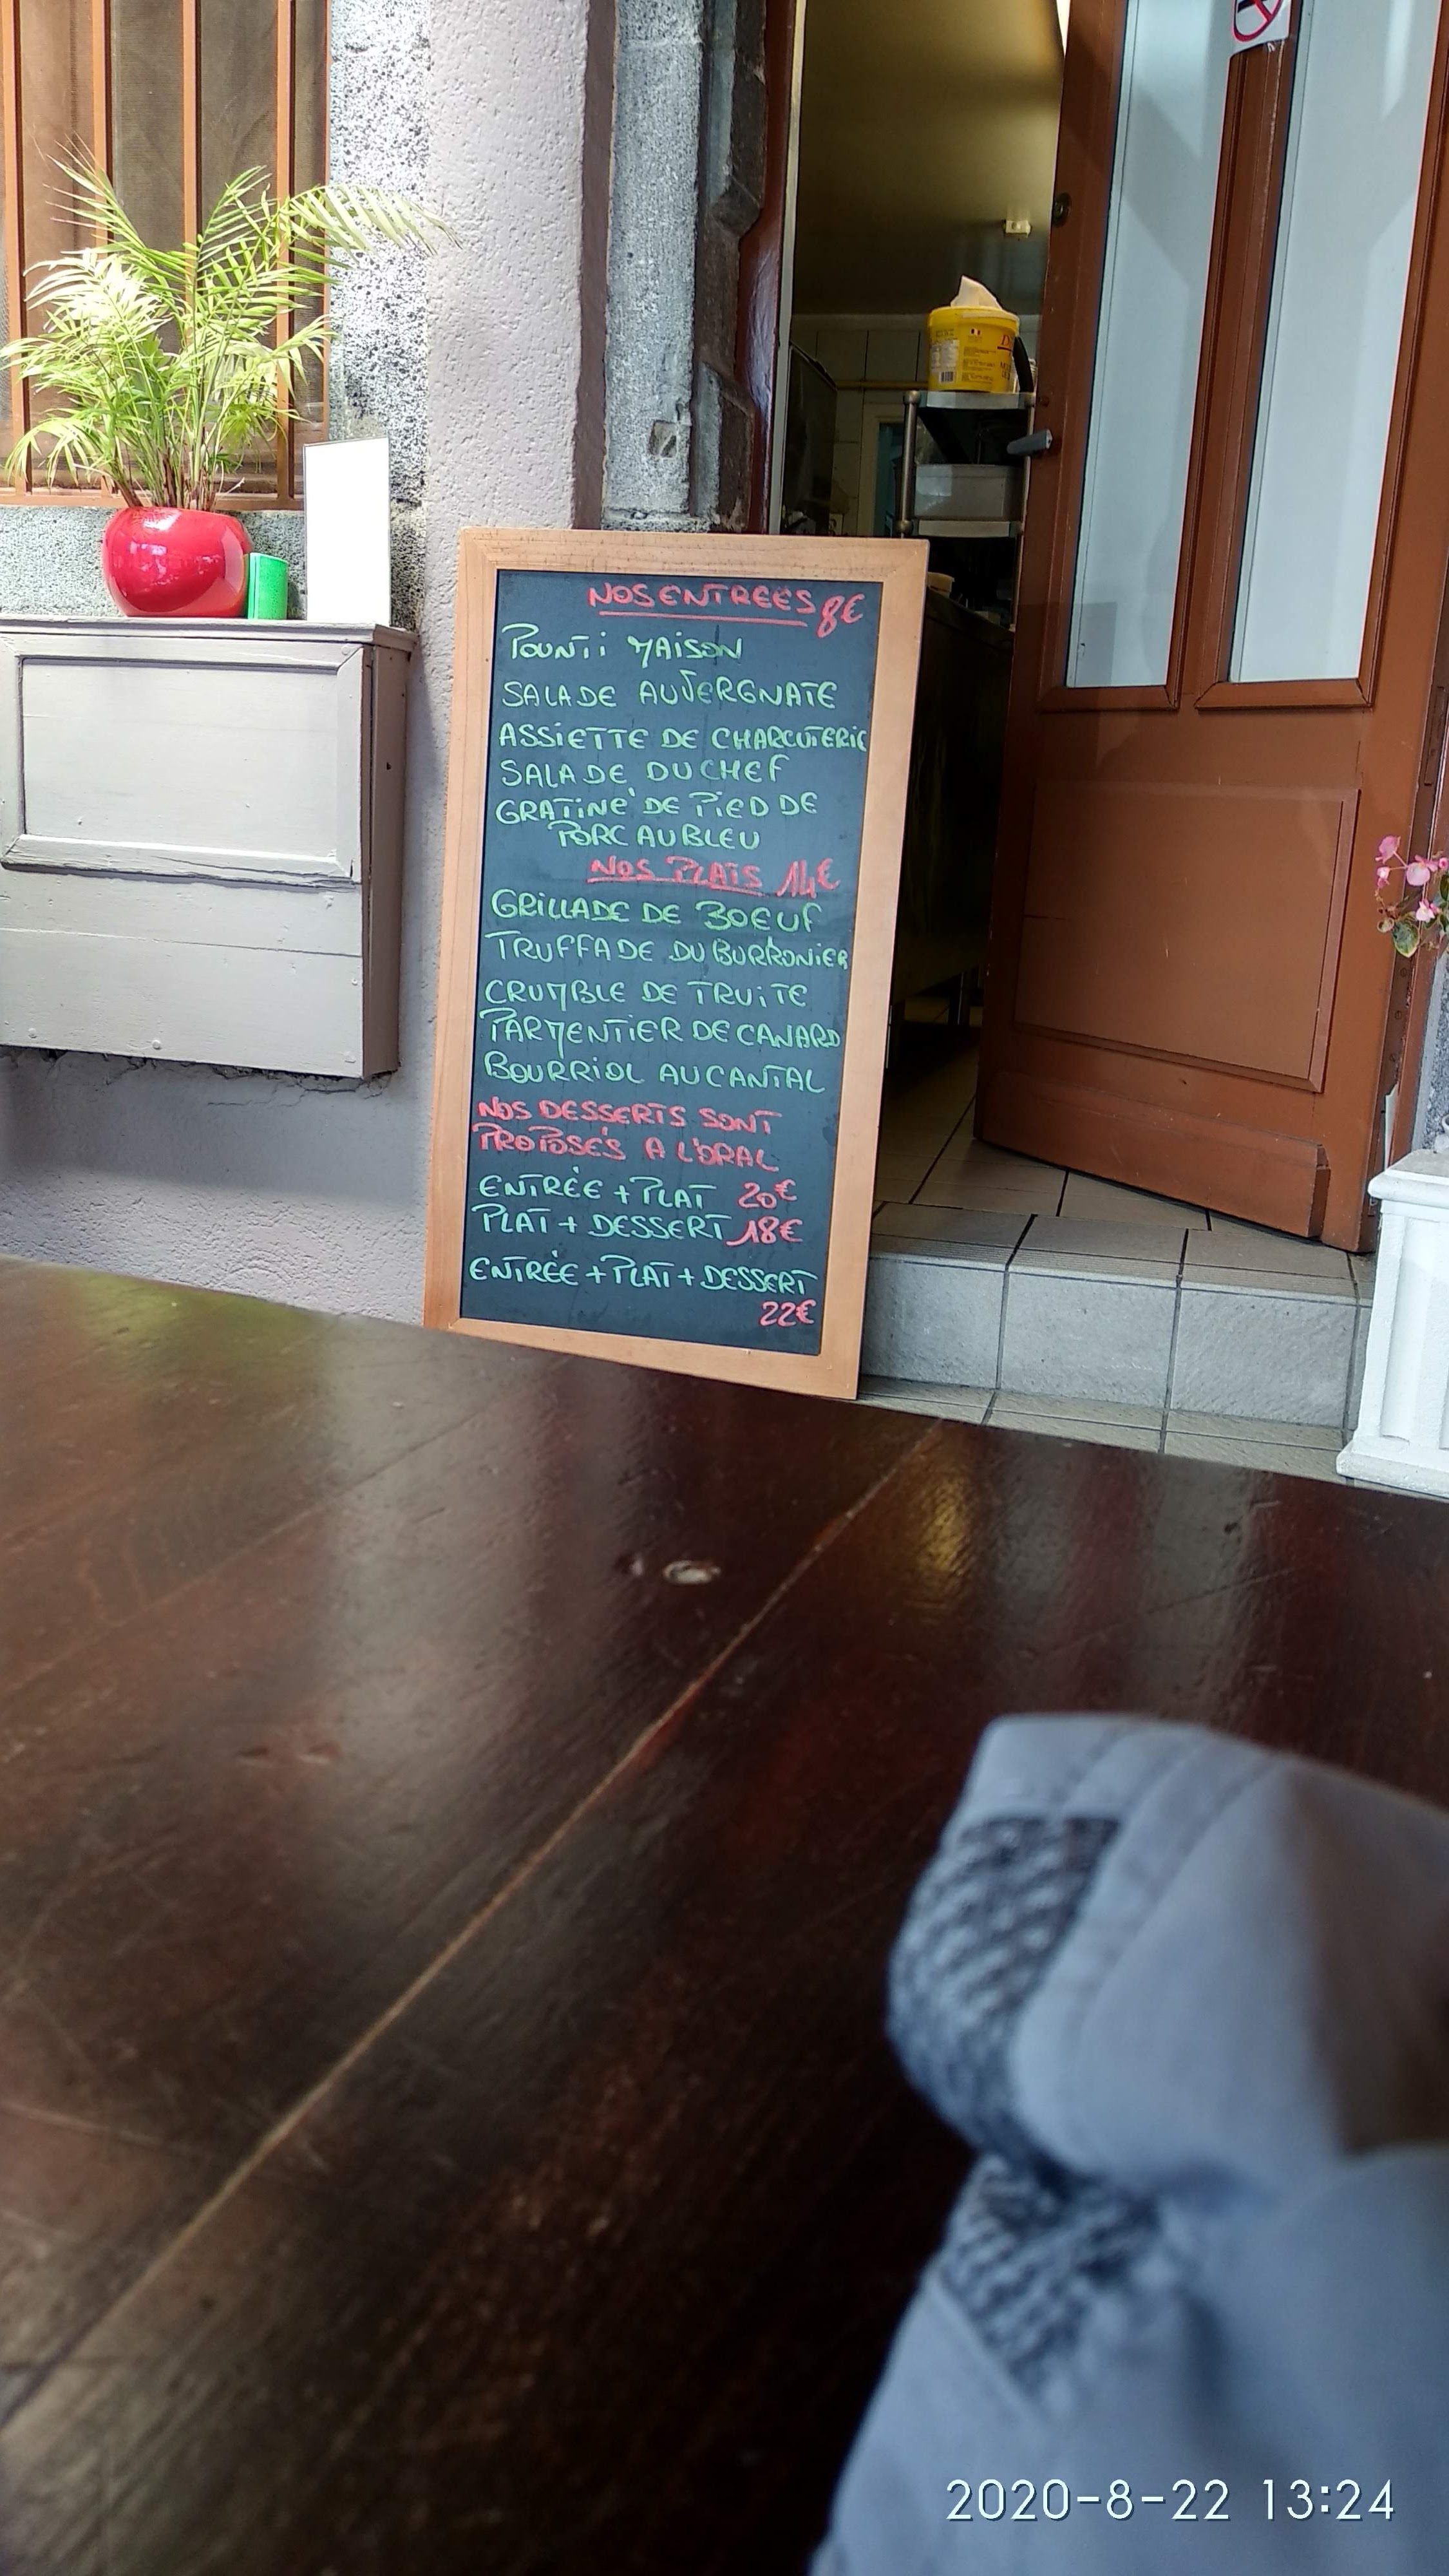 NOS ENTREES 8€
POUNTi MAiSON
SALADE AUVERGNATE
ASSiETTE DE CHARCUTERiE
SALADE DU CHEF
GRATiNÉ DE PiED DE
PORC AU BLEU
NOS PLATS 14€
GRiLLADE DE BOEUF
TRUFFADE DU BURRONiER
CRUMBLE DE TRUiTE
PARMENTIER DE CANARD
BOURRIOL AU CANTAL
NOS DESSERTS SONT
PROPOSÉS A L'ORAL
ENTRÉE + PLAT 20€
PLAT + DESSERT 18€
ENTRÉE + PLAT + DESSERT
22€
2020-8-22 13:24